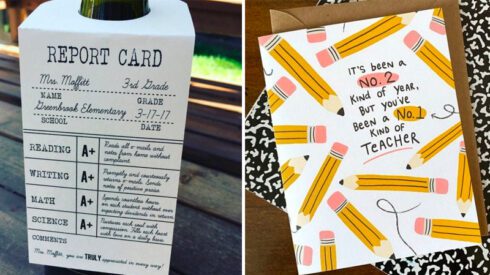 REPORT CARD
Mrs. Moffitt 3rd Grade
NAME GRADE
Greenbrook Elementary 3-17-17
SCHOOL DATE
READING A+ Reads all e-mails and
notes from home without
complaint.
WRITING A+ Promptly and courteously
returns e-mails. Sends
notes of positive praise.
MATH A+ Spends countless hours
on each student without ever
expecting dividends in return.
SCIENCE A+ Nurtures each soul with
compassion. Fills each heart
with love on a daily basis.
COMMENTS
Mrs. Moffitt, you are TRULY appreciated in every way!
IT'S BEEN A
NO. 2
KIND OF YEAR,
BUT YOU'VE
BEEN A NO. 1
KIND OF
TEACHER